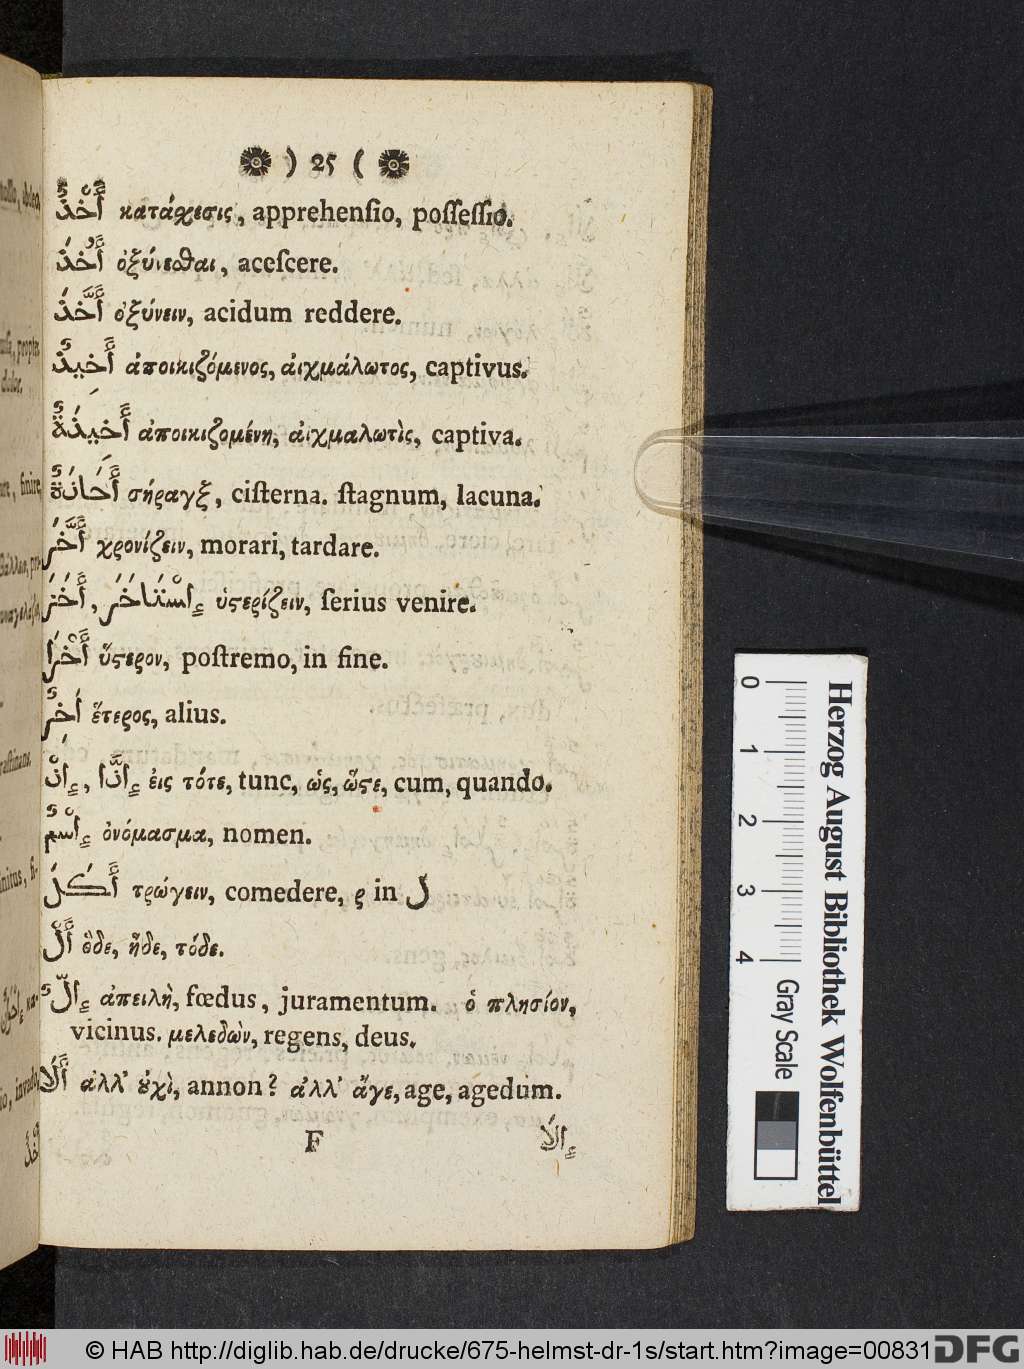 ) 25 (
أَخْذٌ κατάσχεσις, apprehenſio, poſſeſſio.
أَخُذَ ὀξύνεσθαι, aceſcere.
أَخَّذَ ὀξύνειν, acidum reddere.
أَخِيذٌ ἀποικιζόμενος, ἀιχμάλωτος, captivus.
أَخِيذَةٌ ἀποικιζομένη, ἀιχμαλωτὶς, captiva.
σήραγξ, ciſterna. ſtagnum, lacuna.
أَخَّرَ χρονίζειν, morari, tardare.
أَخَّرَ, إِسْتَأخَرَ ὑςερίζειν, ſerius venire.
أُخْرًا ὕςερον, poſtremo, in fine.
أَخَرٌ ἕτερος, alius.
إِذْ, إِذَّا ἐις τότε, tunc, ὡς, ὥςε, cum, quando.
إِسْمٌ ὀνόμασμα, nomen.
أَكَلَ τρώγειν, comedere, ρ in ل
أَلْ ὅδε, ἥδε, τόδε.
إِلٌّ ἀπειλὴ, fœdus, juramentum. ὁ πλησίον,
vicinus. μελεδὼν, regens, deus.
أَلَا ἀλλ' ȣ̓χὶ, annon? ἀλλ' ἄγε, age, agedum.
F إِلَّا
0 1 2 3 4
Herzog August Bibliothek Wolfenbüttel
Gray Scale
© HAB http://diglib.hab.de/drucke/675-helmst-dr-1s/start.htm?image=00831
DFG